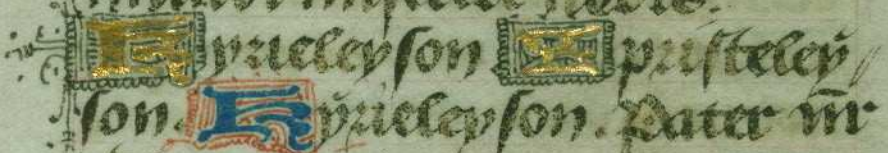 Kyrieleyson Xpristeleÿ
son. Kÿrieleyson. Pater nr̄